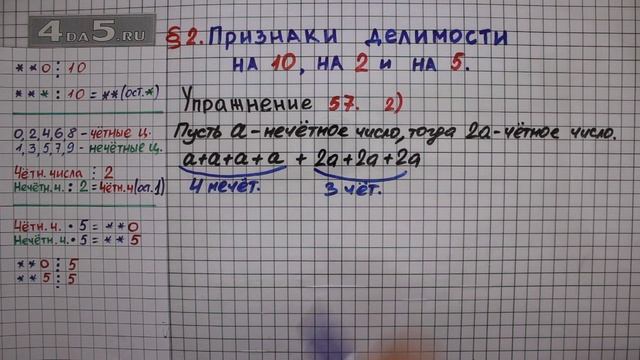 4DA5.RU
§2. Признаки делимости
на 10, на 2 и на 5.
Упражнение 57. 2)
Пусть а-нечётное число, тогда 2а-чётное число.
а+а+а+а + 2а+2а+2а
4 нечёт. 3 чёт.
**0 ⋮ 10
*** : 10 = **(ост.*)
0,2,4,6,8 - чётные ц.
1,3,5,7,9 - нечётные ц.
Чётн. числа ⋮ 2
Нечётн. ч. : 2 = чётн.ч(ост.1)
Чётн. ч. • 5 = **0
Нечётн. ч. • 5 = **5
**0 ⋮ 5
**5 ⋮ 5